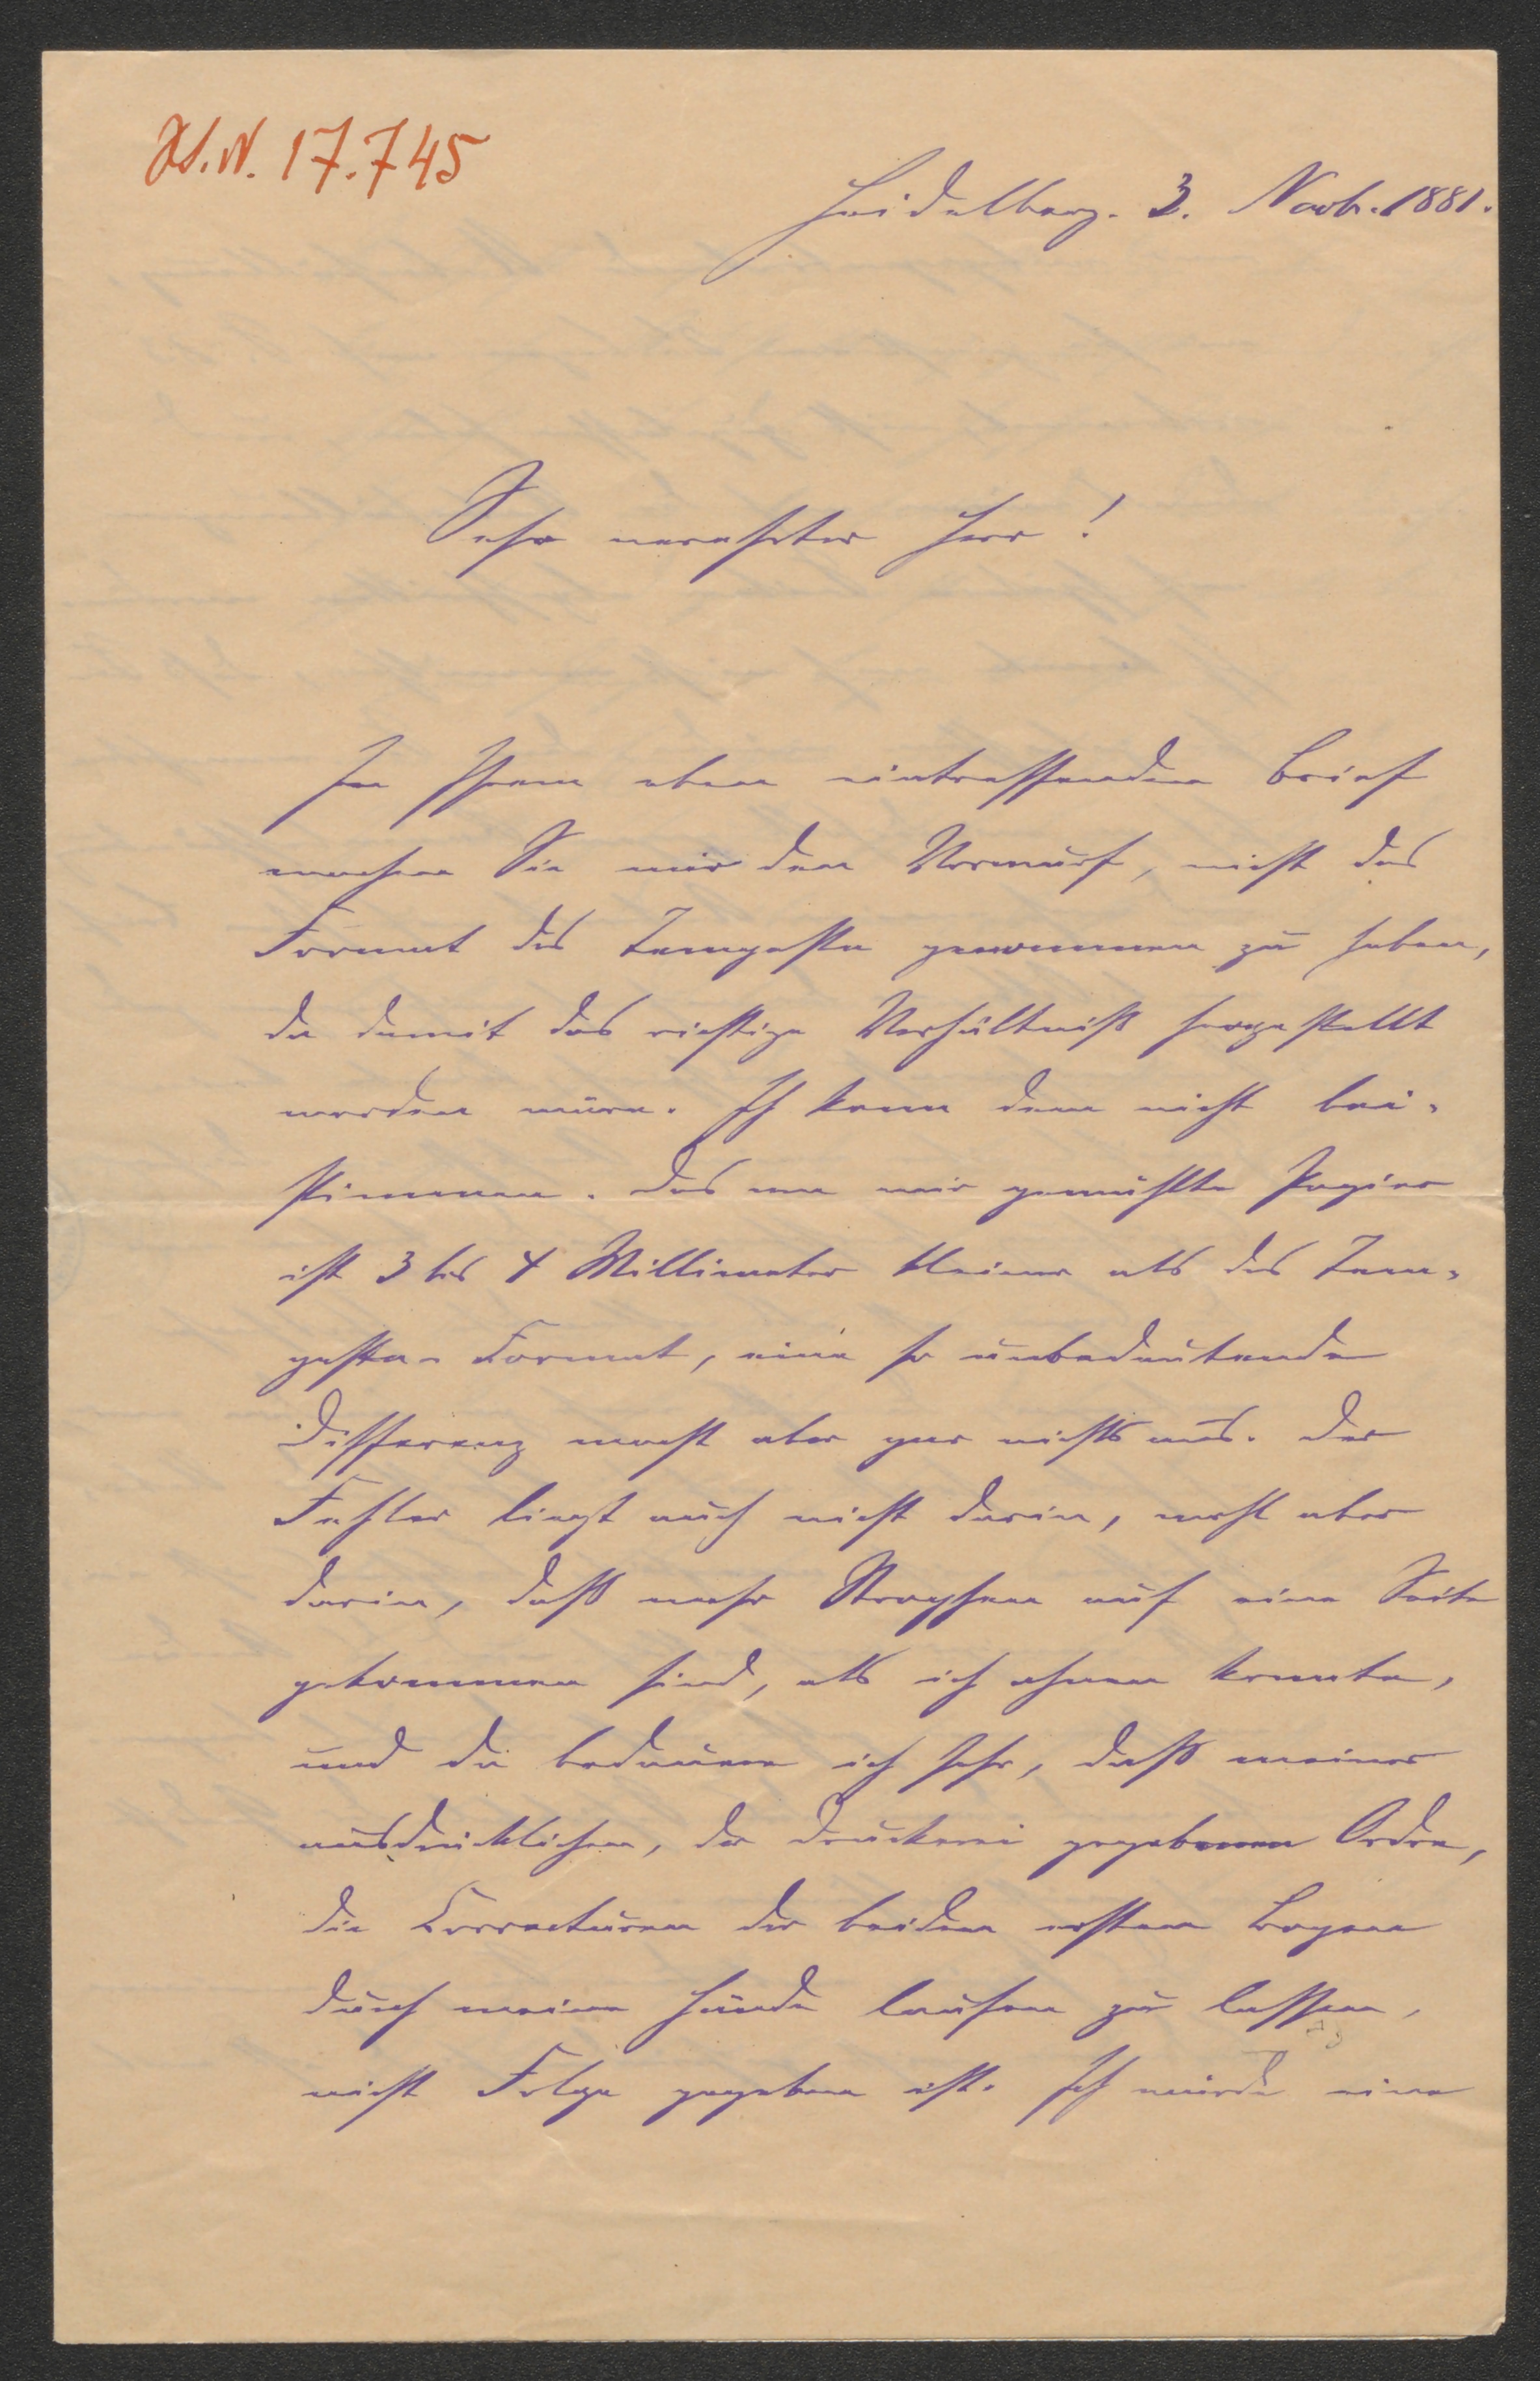 H.N. 17.745
Heidelberg. 3. Novb. 1881.
Sehr verehrter Herr!
In Ihrem eben eintreffenden Brief
machen Sie mir den Vorwurf, nicht das
Format des Tempeste genommen zu haben,
da damit das richtige Verhältniß hergestellt
worden wäre. Ich kann dem nicht bei-
stimmen. Das von mir gewählte Papier
ist 3 bis 4 Millimeter kleiner als das Tem-
peste-Format, eine so unbedeutende
Differenz macht aber gar nichts aus. Der
Fehler liegt auch nicht darin, wohl aber
darin, daß mehr Strophen auf eine Seite
gekommen sind, als ich ahnen konnte,
und da bedauere ich sehr, daß meiner
ausdrücklichen, der Druckerei gegebenen Ordre,
die Correcturen der beiden ersten Bogen
durch meine Hände laufen zu lassen,
nicht Folge gegeben ist. Ich würde eine